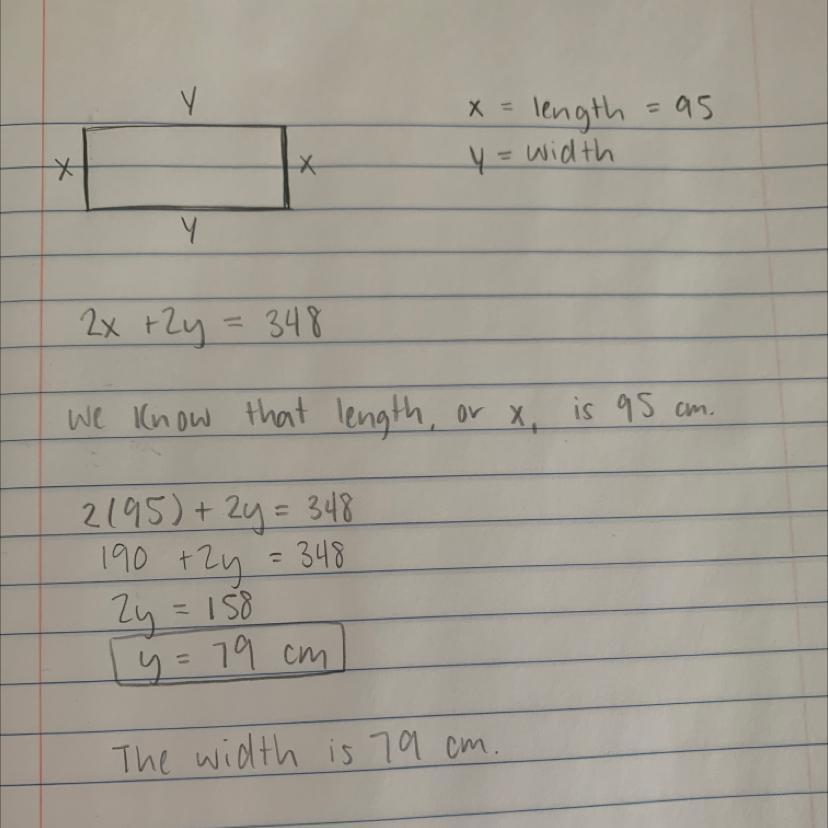 Y
x = length = 95
x
x
y = width
y
2x + 2y = 348
We know that length, or x, is 95 cm.
2(95) + 2y = 348
190 + 2y = 348
2y = 158
y = 79 cm
The width is 79 cm.